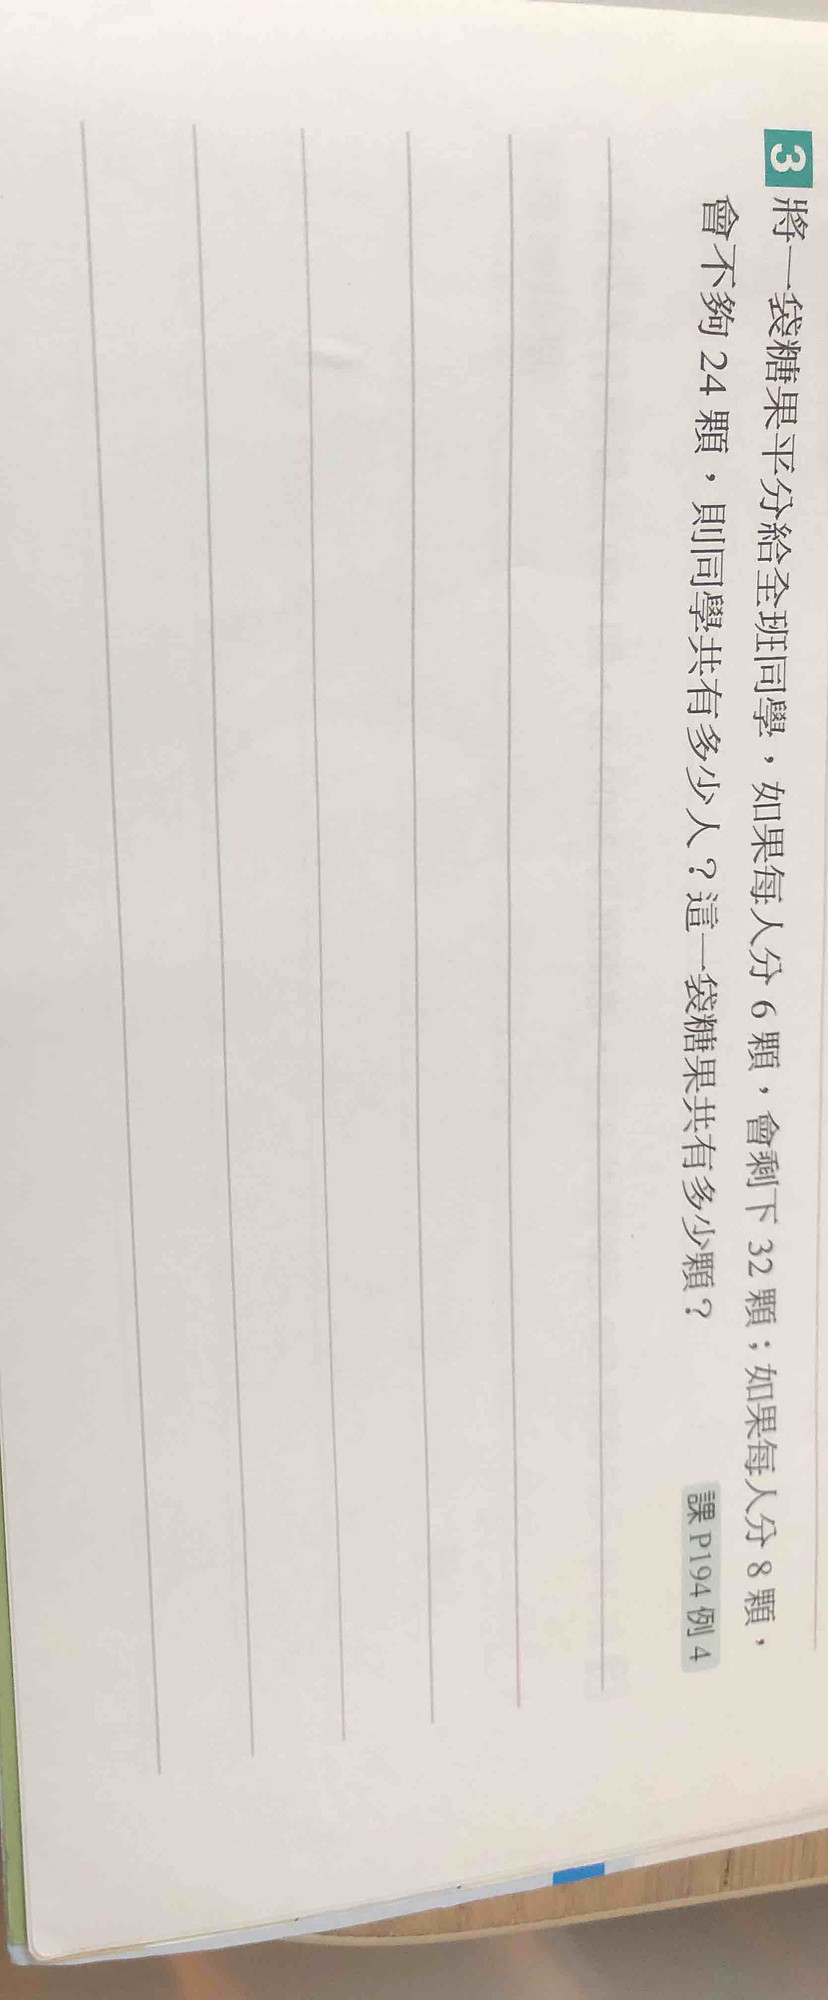 3 將一袋糖果平分給全班同學，如果每人分 6 顆，會剩下 32 顆；如果每人分 8 顆，
會不夠 24 顆，則同學共有多少人？這一袋糖果共有多少顆？ 課 P194 例 4